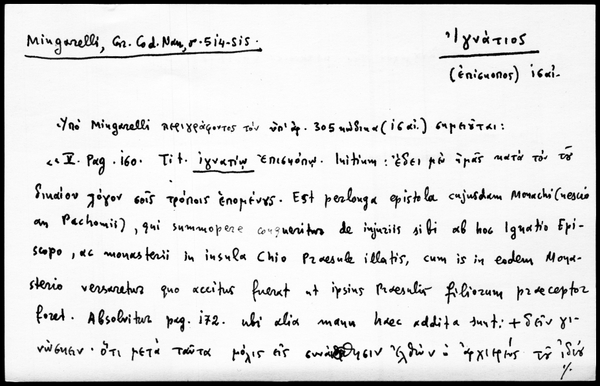 Mingarelli, Gr. Cod. Nan, σ. 514-515.
Ἰγνάτιος
(ἐπίσκοπος) ις αἰ.
Ὑπὸ Mingarelli περιγράφοντος τὸν ὑπ' ἀρ. 305 κώδικα (ις αἰ.) σημειοῦται:
«V. Pag. 160. Tit. ἰγνατίῳ ἐπισκόπῳ. Initium: ἔδει μὲν ἡμᾶς κατὰ τὸν τοῦ
δικαίου λόγον σοῖς τρόποις ἑπομένους. Est perlonga epistola cujusdam Monachi (nescio
an Pachomii), qui summopere conqueritur de injuriis sibi ab hoc Ignatio Epi-
scopo, ac monasterii in insula Chio Praesule illatis, cum is in eodem Mona-
sterio versaretur quo accitus fuerat ut ipsius Praesulis filiorum praeceptor
foret. Absolvitur pag. 172. ubi alia manu haec addita sunt: + δεῖν γι-
νώσκειν. ὅτι μετὰ ταῦτα μόλις εἰς συναίσθησιν ἐλθὼν ὁ ἀρχιερεὺς τοῦ ἰδίου
./.